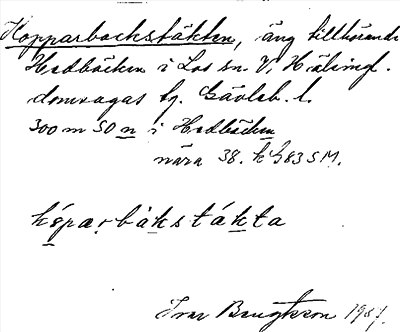 Kopparbackstäkten, äng tillhörande
Hedbäcken i Los sn. V. Hälsingl.
domsagas tg. Gävleb. l.
300 m SO n i Hedbäcken
nära 38. k 783 S M.
kóparbàkstákta
Ivar Bengtsson 1937.